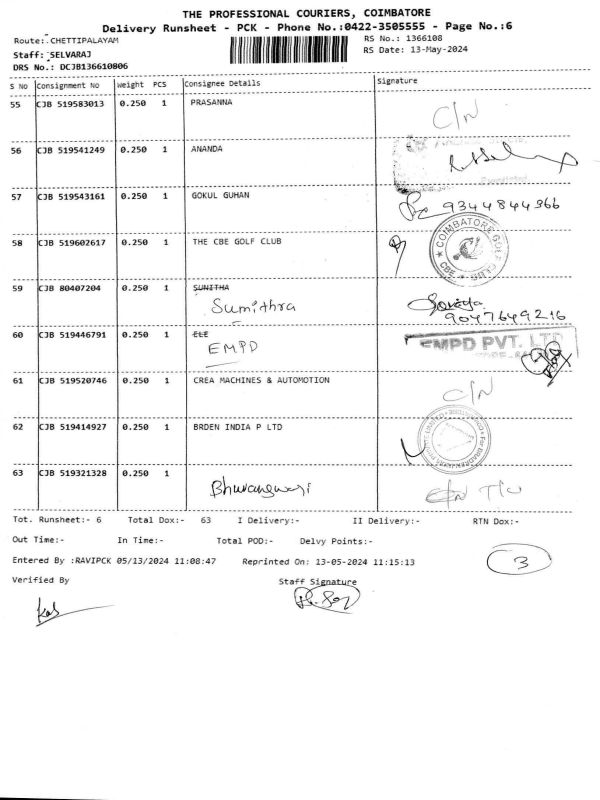 THE PROFESSIONAL COURIERS, COIMBATORE
Delivery Runsheet - PCK - Phone No.:0422-3505555 - Page No.:6
Route:.CHETTIPALAYAM
RS No.: 1366108
Staff: SELVARAJ
RS Date: 13-May-2024
DRS No.: DCJB136610806
S No Consignment No Weight PCS Consignee Details Signature
55 CJB 519583013 0.250 1 PRASANNA C/N
56 CJB 519541249 0.250 1 ANANDA
57 CJB 519543161 0.250 1 GOKUL GUHAN 9344844366
58 CJB 519602617 0.250 1 THE CBE GOLF CLUB COIMBATORE GOLF CLUB ★ CBE ★
59 CJB 80407204 0.250 1 SUNITHA
Sumithra
9047649216
60 CJB 519446791 0.250 1 ELE
EMPD
EMPD PVT. LTD
61 CJB 519520746 0.250 1 CREA MACHINES & AUTOMOTION C/N
62 CJB 519414927 0.250 1 BRDEN INDIA P LTD
63 CJB 519321328 0.250 1
C/N
Tot. Runsheet:- 6 Total Dox:- 63 I Delivery:- II Delivery:- RTN Dox:-
Out Time:- In Time:- Total POD:- Delvy Points:-
Entered By :RAVIPCK 05/13/2024 11:08:47 Reprinted On: 13-05-2024 11:15:13
3
Verified By Staff Signature